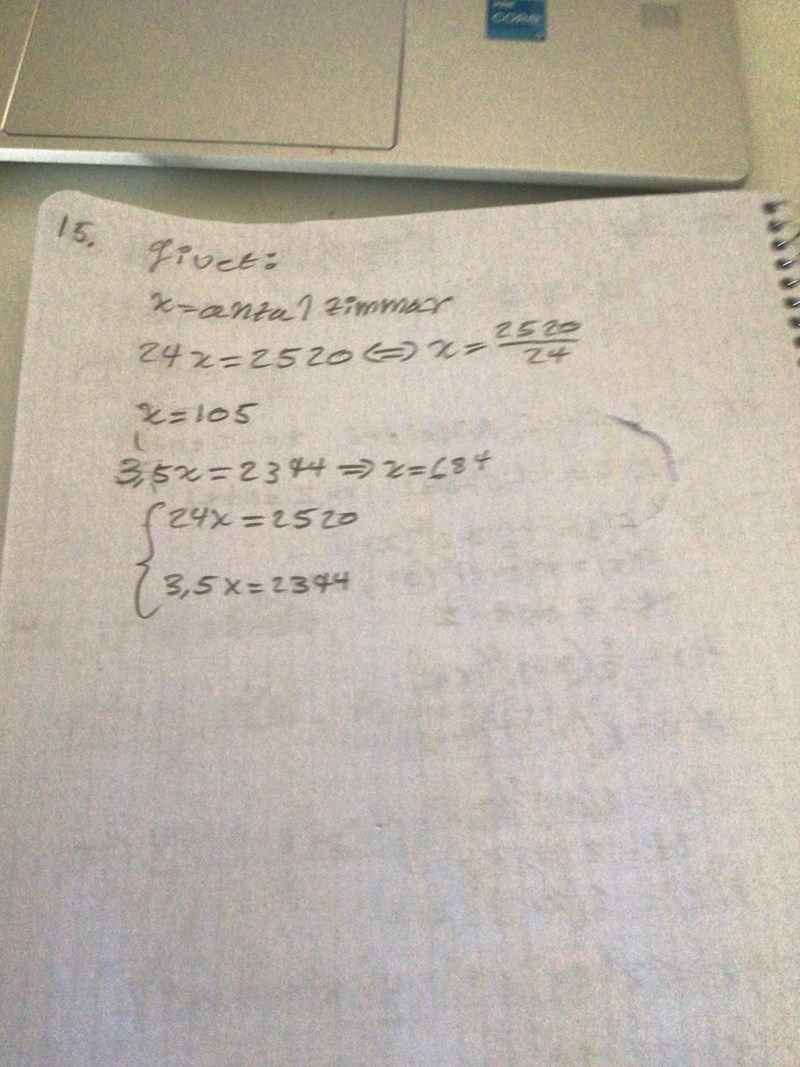 intel
CORE
15. givet:
x=antal timmar
24x=2520 ⇔ x=2520/24
x=105
3,5x=2394 ⇒ x=684
{24x=2520
3,5x=2394